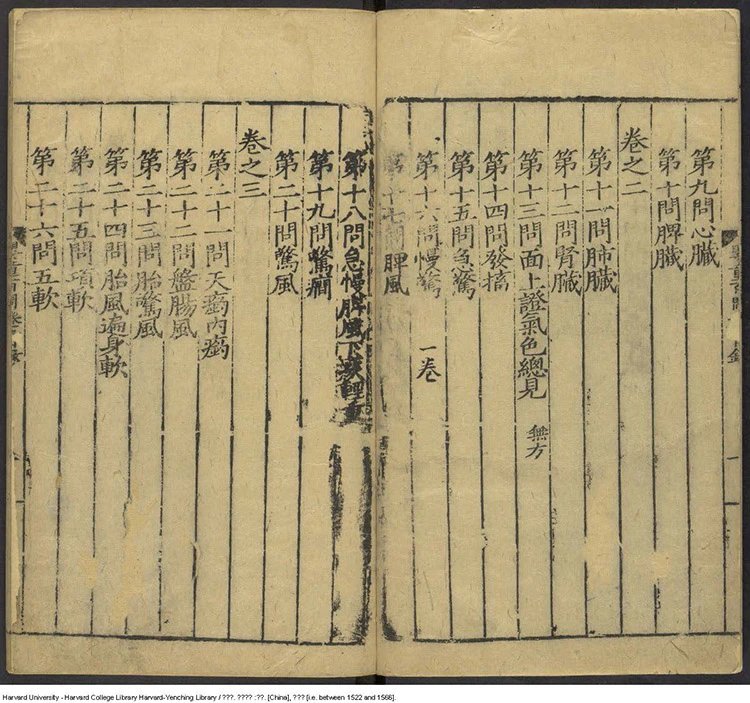 第九問心臟
第十問脾臟
卷之二
第十一問肺臟
第十二問腎臟
第十三問面上證氣色總見 無方
第十四問發搐
第十五問急驚
第十六問慢驚 一卷
第十七問脾風
第十八問急慢脾風下痰輕重
第十九問驚癇
第二十問驚風
卷之三
第二十一問天瘹內瘹
第二十二問盤腸風
第二十三問胎驚風
第二十四問胎風遍身軟
第二十五問項軟
第二十六問五軟
Harvard University - Harvard College Library Harvard-Yenching Library / ???. ???? :??. [China], ??? [i.e. between 1522 and 1566].